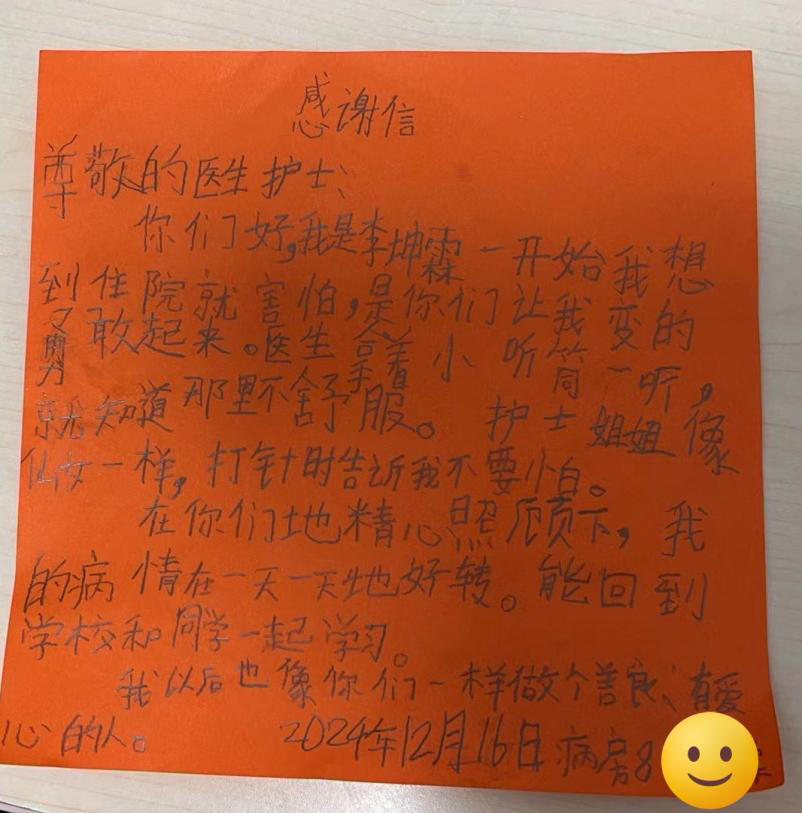 感谢信
尊敬的医生护士:
你们好,我是李坤霖一开始我想
到住院就害怕,是你们让我变的
勇敢起来。医生拿着小听筒一听,
就知道那里不舒服。护士姐姐像
仙女一样,打针时告诉我不要怕。
在你们地精心照顾下,我
的病情在一天一天地好转。能回到
学校和同学一起学习。
我以后也像你们一样做个善良、有爱
心的人。 2024年12月16日 病房8